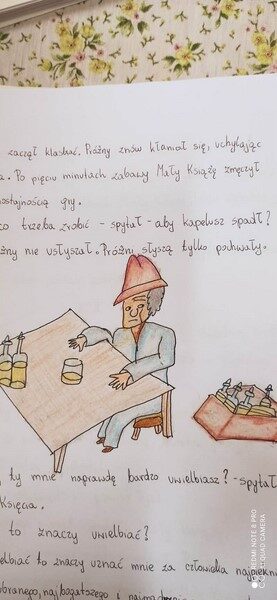 zaczął klaskać. Próżny znów kłaniał się, uchylając
a. Po pięciu minutach zabawy Mały Książę zmęczył
nostajnością gry.
co trzeba zrobić - spytał - aby kapelusz spadł?
żny nie usłyszał. Próżni słyszą tylko pochwały.
ty mnie naprawdę bardzo uwielbiasz? - spytał
Księcia.
to znaczy uwielbiać?
elbiać to znaczy uznać mnie za człowieka najpiękn
ubranego, najbogatszego i najmądrzejsz
REDMI NOTE 8 PRO
AI QUAD CAMERA